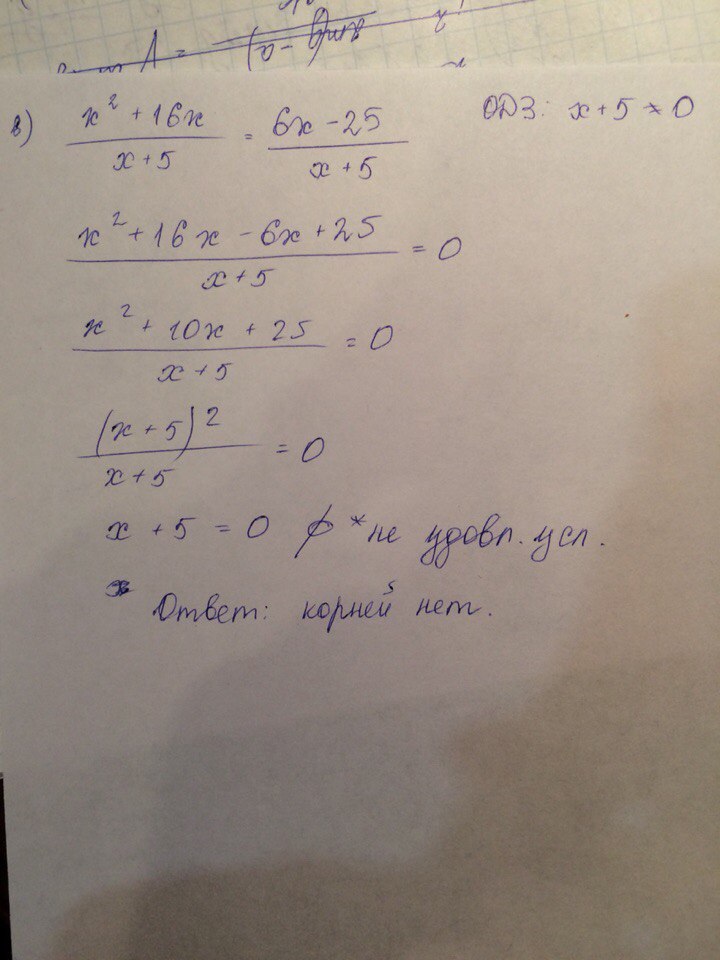 в) (x² + 16x)/(x + 5) = (6x − 25)/(x + 5) ОДЗ: x + 5 ≠ 0
(x² + 16x − 6x + 25)/(x + 5) = 0
(x² + 10x + 25)/(x + 5) = 0
(x + 5)²/(x + 5) = 0
x + 5 = 0 ∅ * не удовл. усл.
Ответ: корней нет.